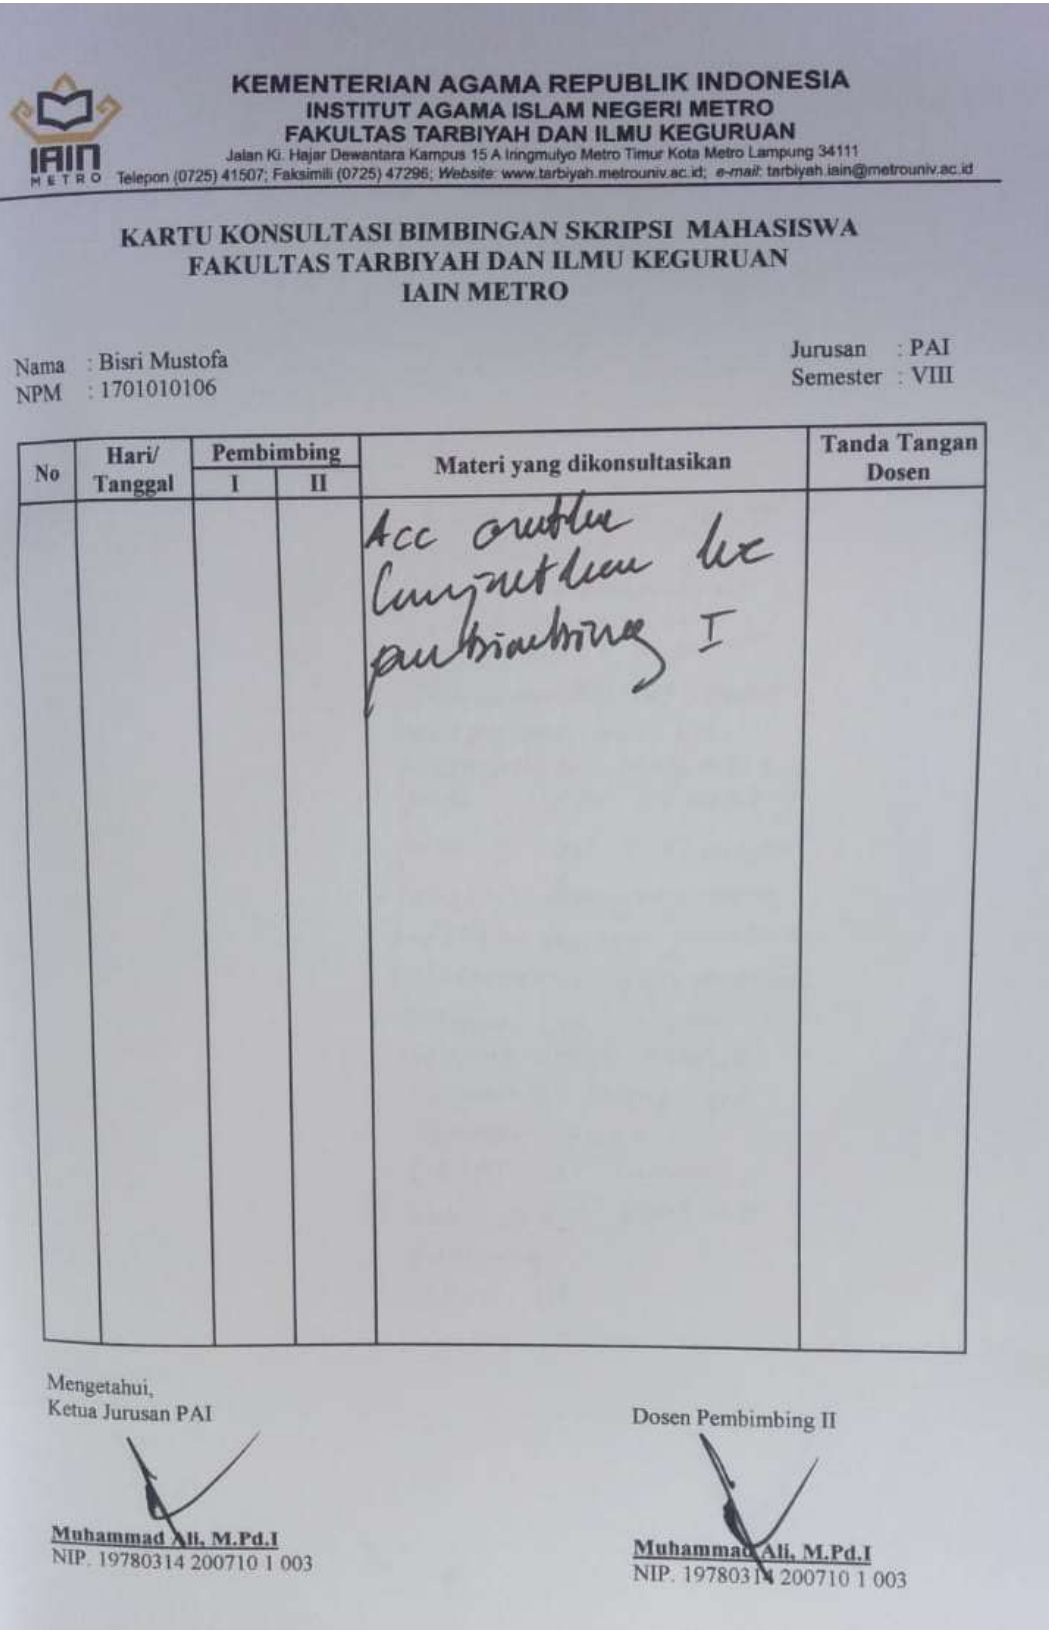 KEMENTERIAN AGAMA REPUBLIK INDONESIA
INSTITUT AGAMA ISLAM NEGERI METRO
FAKULTAS TARBIYAH DAN ILMU KEGURUAN
Jalan Ki. Hajar Dewantara Kampus 15 A Iringmulyo Metro Timur Kota Metro Lampung 34111
Telepon (0725) 41507; Faksimili (0725) 47296; Website: www.tarbiyah.metrouniv.ac.id; e-mail: tarbiyah.iain@metrouniv.ac.id
IAIN
METRO
KARTU KONSULTASI BIMBINGAN SKRIPSI MAHASISWA
FAKULTAS TARBIYAH DAN ILMU KEGURUAN
IAIN METRO
Nama : Bisri Mustofa
NPM : 1701010106
Jurusan : PAI
Semester : VIII
No
Hari/
Tanggal
Pembimbing
I II
Materi yang dikonsultasikan
Tanda Tangan
Dosen
Acc untuk
lanjutkan ke
pembimbing I
Mengetahui,
Ketua Jurusan PAI
Muhammad Ali, M.Pd.I
NIP. 19780314 200710 1 003
Dosen Pembimbing II
Muhammad Ali, M.Pd.I
NIP. 19780314 200710 1 003